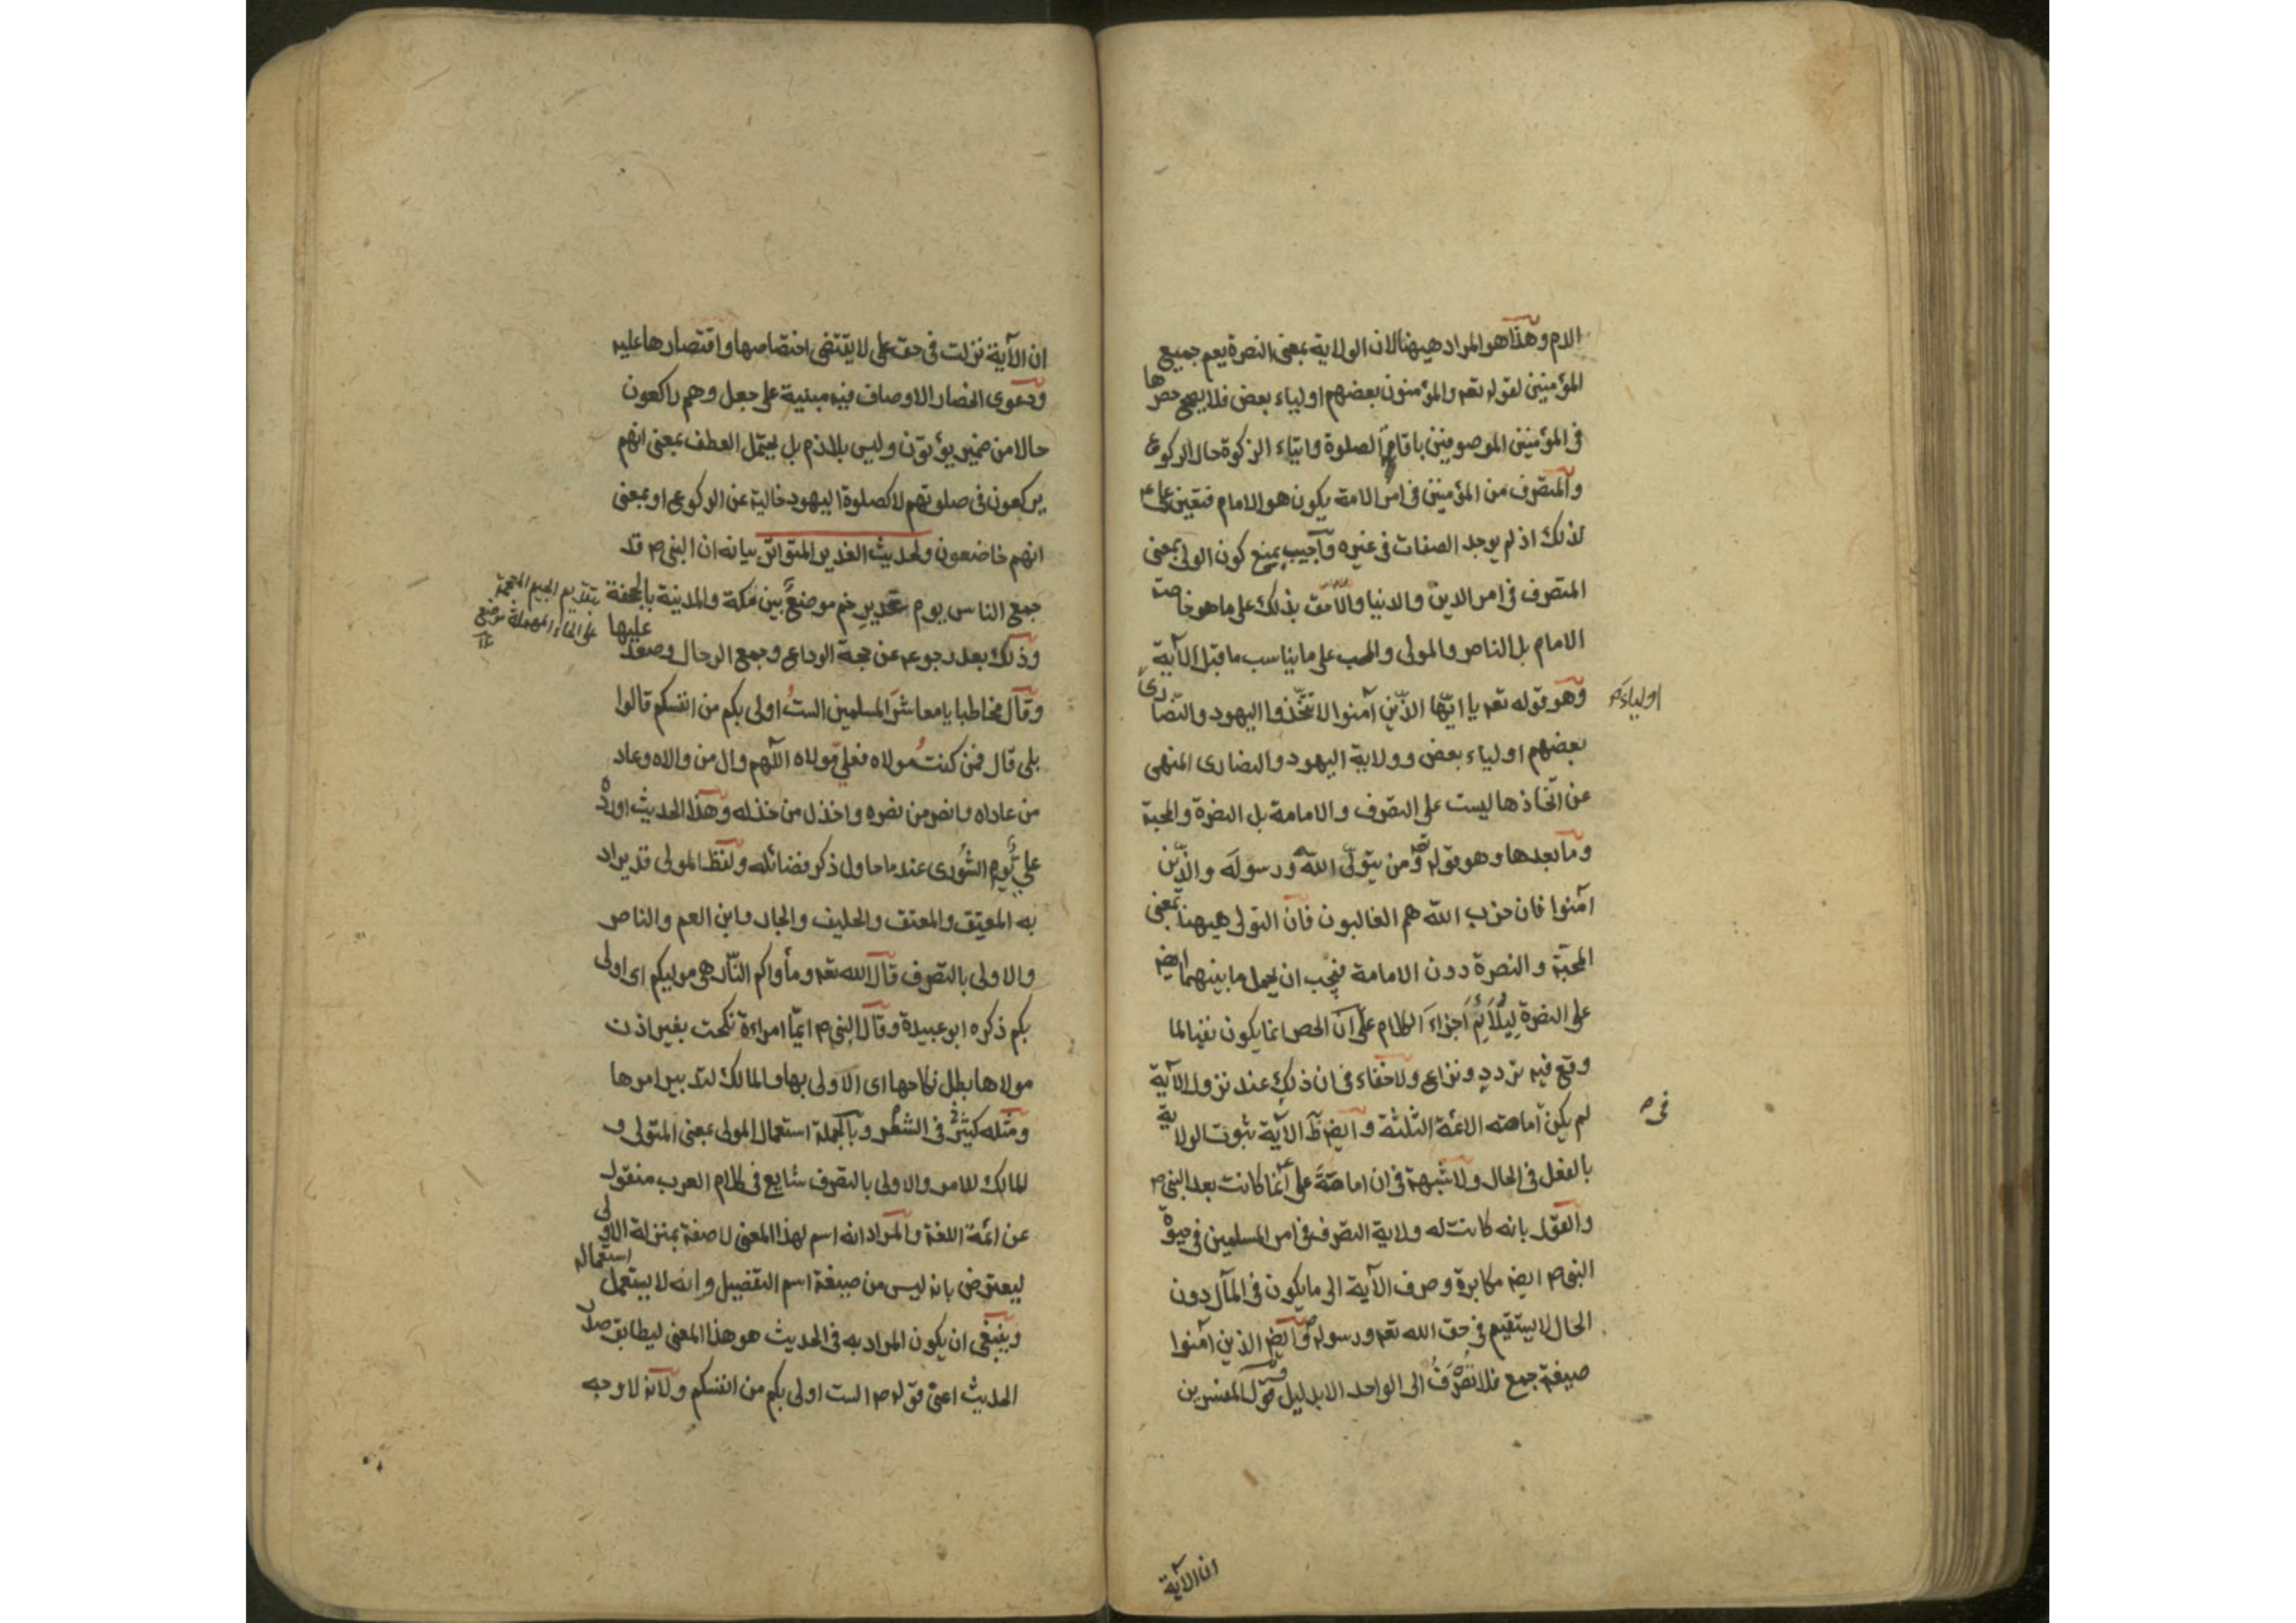 الامر وهذا هو المراد هيهنا لان الولاية بمعنى النصرة يعم جميع
المؤمنين لقوله تعه والمؤمنون بعضهم اولياء بعض فلا يصح حصرها
فى المؤمنين الموصوفين باقامة الصلوة وايتاء الزكوة حال الركوع
والمتصرف من المؤمنين فى امر الامة يكون هو الامام فتعين على ع
لذلك اذ لم يوجد الصفات فى غيره واجيب بمنع كون الولى بمعنى
المتصرف فى امر الدين والدنيا والاحق بذلك على ما هو خاصة
الامام بل الناصر والمولى والمحب على ما يناسب ما قبل الآية
وهو قوله تعه يا ايّها الذّين آمنوا لا تتّخذوا اليهود والنّصارى
اولياء م
بعضهم اولياء بعض وولاية اليهود والنصارى المنهى
عن اتّخاذها ليست على التصرف والامامة بل النصرة والمحبة
وما بعدها وهو قوله تعه ومن يتولّى اللّه ورسوله والذّين
آمنوا فان حزب اللّه هم الغالبون فان التولى هيهنا بمعنى
المحبّة والنصرة دون الامامة فيجب ان يحمل ما بينهما ايضه
على النصرة ليلائم اجزاء الكلام على ان الحصر انما يكون نفيا لما
وقع فيه تردد ونزاع ولا خفاء فى ان ذلك عند نزول الآية
لم يكن امامته الائمّة الثلثة وايضه ظ الآية ثبوت الولاية
فى م
بالفعل فى الحال ولا شبهة فى ان امامته على انما كانت بعد النبى ص
والقول بانه كانت له ولاية التصرف فى امر المسلمين فى حيوة
النبى ص ايضه مكابرة وصرف الآية الى ما يكون فى المآل دون
الحال لا يستقيم فى حق الله تعه ورسوله وايضه الذين آمنوا
صيغة جمع فلا تصرف الى الواحد الا بدليل وقول المفسرين
ان الآية
ان الآية نزلت فى حق على لا يقتضى اختصاصها واقتصارها عليه
ودعوى انحصار الاوصاف فيه مبنية على جعل وهم راكعون
حالا من ضمير يؤتون وليس بلازم بل يحتمل العطف بمعنى انهم
يركعون فى صلوتهم لا كصلوة اليهود خالية عن الركوع او بمعنى
انهم خاضعون ولحديث الغدير المتواتر بيانه ان النبى ص قد
جمع الناس يوم غدير خم موضع بين مكة والمدينة بالجحفة
بتقديم الجيم المعجمة
على الحاء المهملة موضع
وذلك بعد رجوعه عن حجة الوداع وجمع الرحال وصعد عليها
وقال مخاطبا يا معاشر المسلمين الستُ اولى بكم من انفسكم قالوا
بلى قال فمن كنتُ مولاه فعلى مولاه اللّهم وال من والاه وعاد
من عاداه وانصر من نصره واخذل من خذله وهذا الحديث اورده
على يوم الشورى عند ما حاول ذكر فضائله ولفظ المولى قد يراد
به المعتِق والمعتَق والحليف والجار وابن العم والناصر
والاولى بالتصرف قال الله تعه ومأواكم النّار هى موليكم اى اولى
بكم ذكره ابو عبيدة وقال النبى ص ايّما امراءة نكحت بغير اذن
مولاها بطل نكاحها اى الاولى بها والمالك لتدبير امورها
ومثله كثير فى الشعر وبالجملة استعمال المولى بمعنى المتولى و
المالك للامر والاولى بالتصرف شايع فى كلام العرب منقول
عن ائمّة اللغة والمراد انه اسم لهذا المعنى لا صفة بمنزلة الاولى
ليعترض بانه ليس من صيغة اسم التفضيل وانه لا يستعمل استعماله
وينبغى ان يكون المراد به فى الحديث هو هذا المعنى ليطابق صدر
الحديث اعنى قوله ص الست اولى بكم من انفسكم ولانه لا وجه